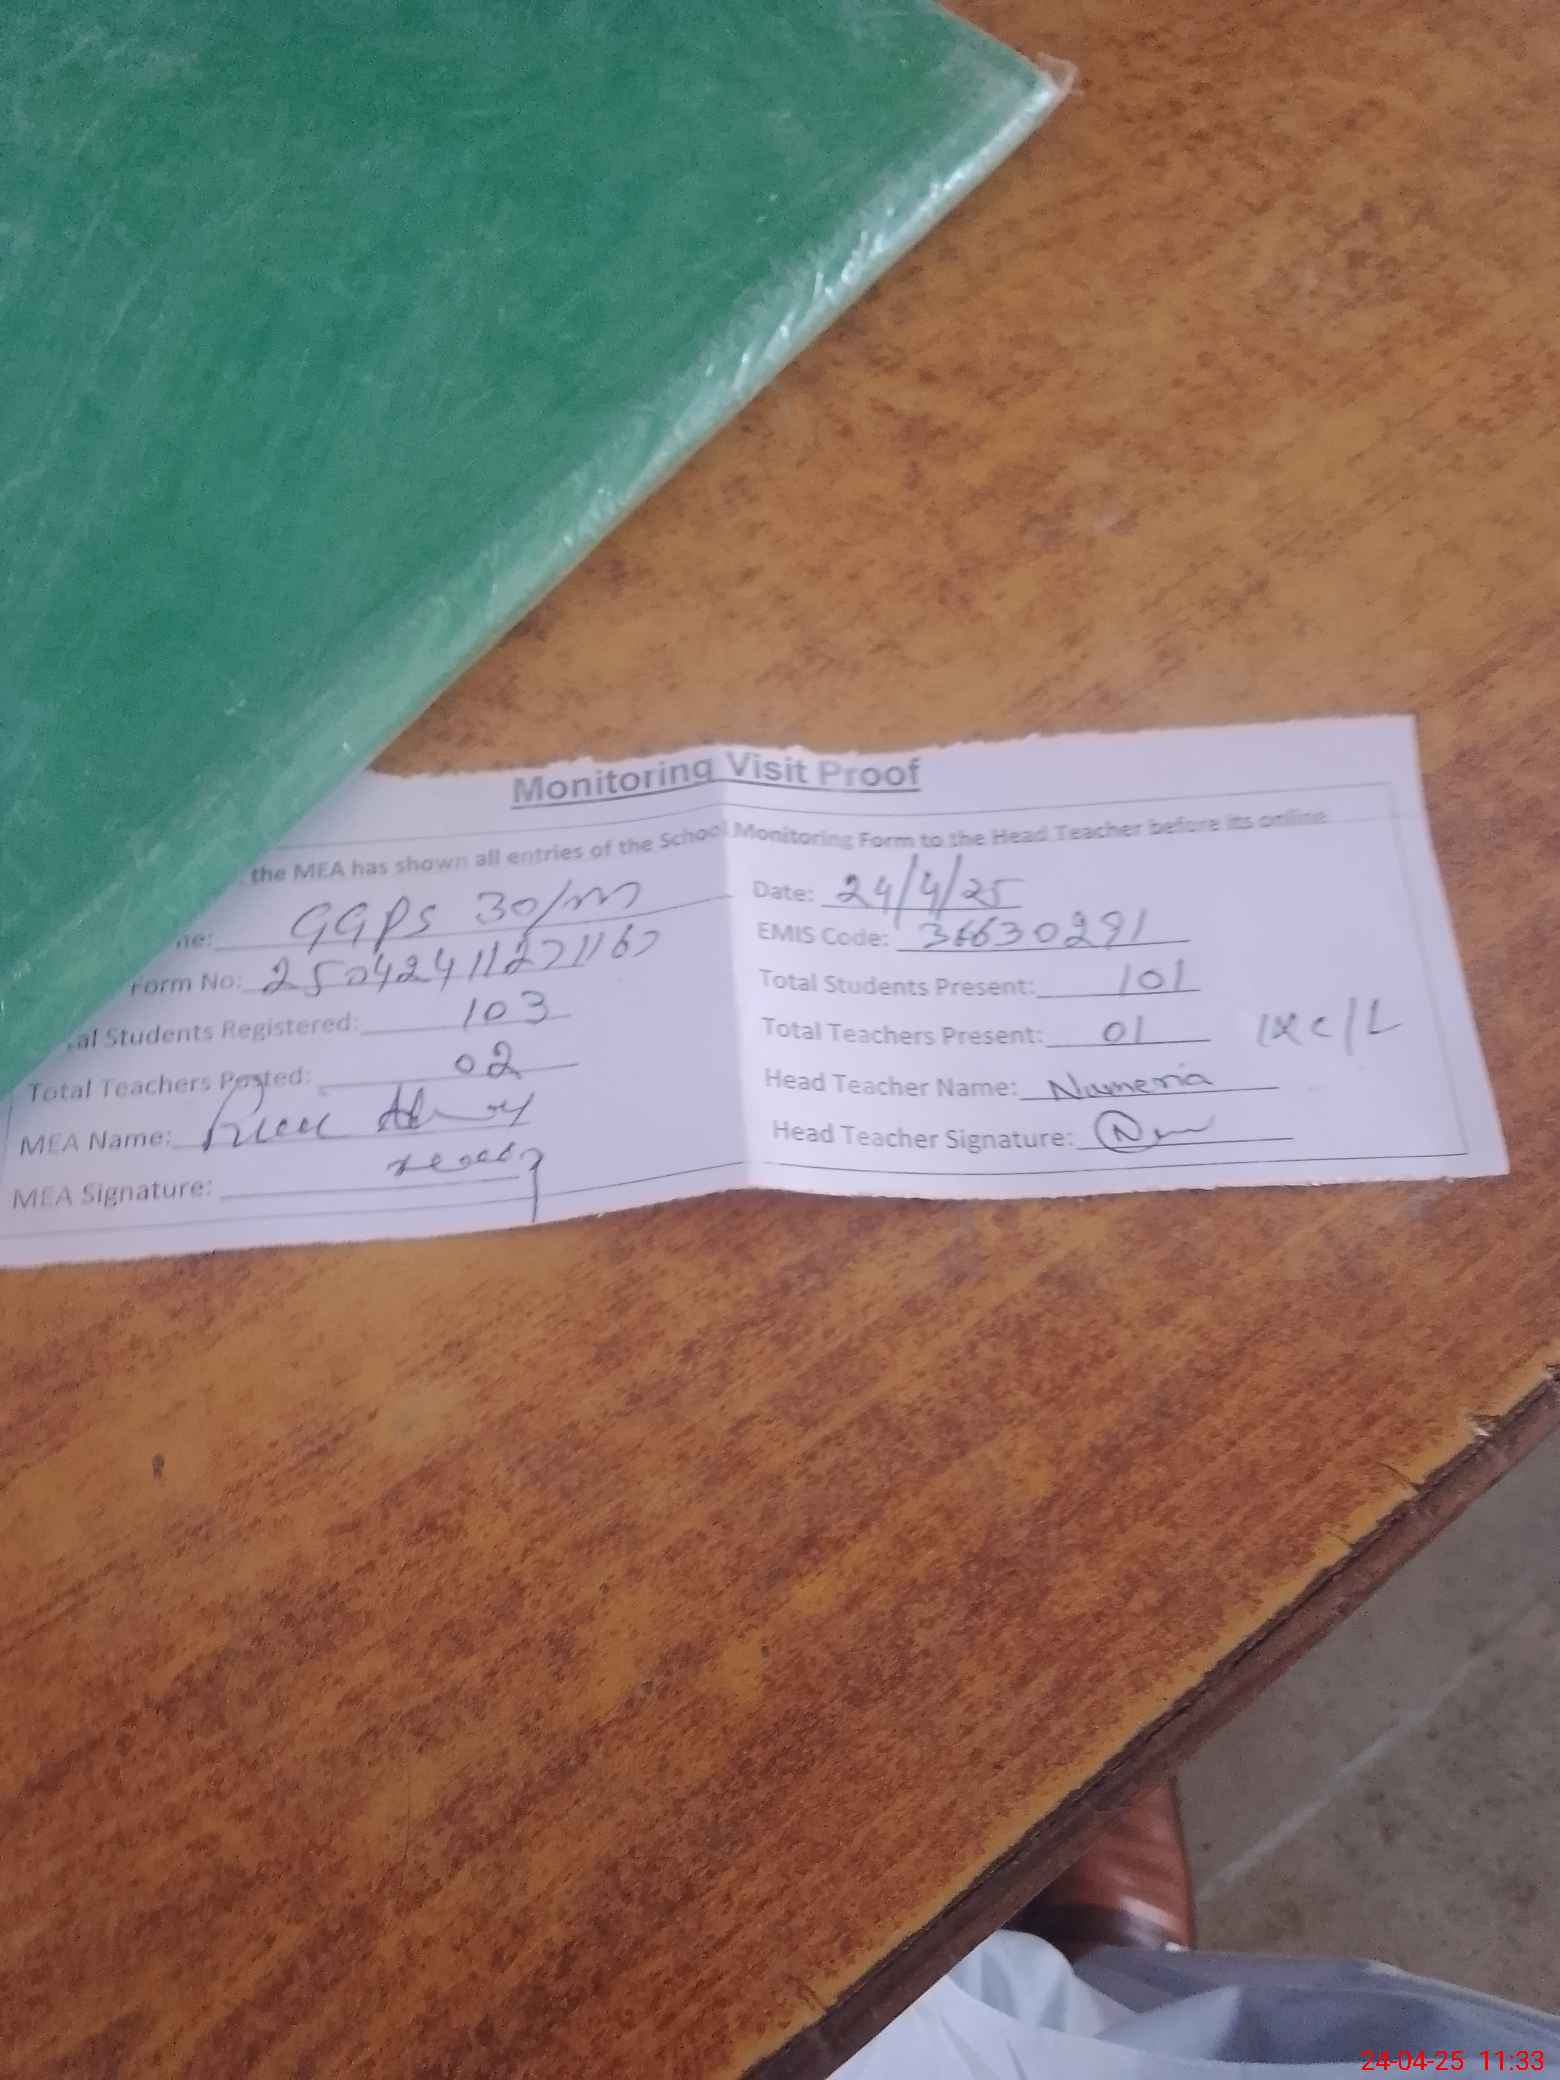 Monitoring Visit Proof
the MEA has shown all entries of the School Monitoring Form to the Head Teacher before its online
me: GGPS 30/m Date: 24/4/25
Form No: EMIS Code: 36630291
al Students Registered: 103 Total Students Present: 101
Total Teachers Posted: 02 Total Teachers Present: 01 1xc/L
MEA Name: Head Teacher Name:
MEA Signature: Head Teacher Signature:
24-04-25 11:33